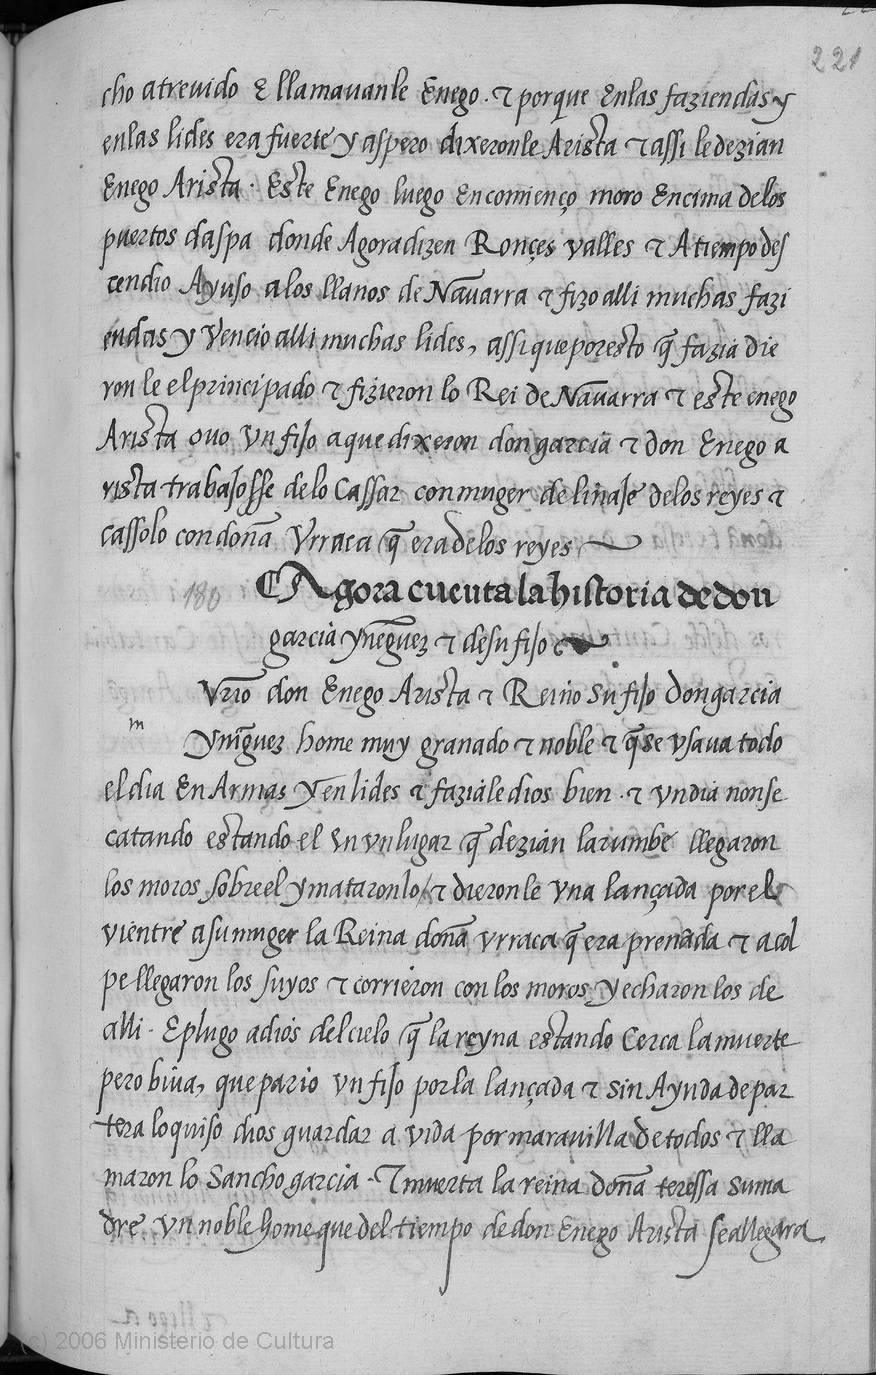 221
cho atreuido E llamauanle Enego. τ porque Enlas faziendas y
enlas lides era fuerte y aspero dixeronle Arista τ assi le dezian
Enego Arista. Este Enego luego Encomienço moro Encima delos
puertos daspa donde Agora dizen Ronçes valles τ A tiempo des
cendio Ayuso alos llanos de Nauarra τ fizo alli muchas fazi
endas y Vencio alli muchas lides, assi que por esto q̃ fazia die
ron le el principado τ fizieron lo Rei de Nauarra τ este enego
Arista ouo Vn fijo aque dixeron don garcia τ don Enego a
rista trabajosse delo Cassar con muger de linaje delos reyes τ
cassolo con doña Vrraca q̃ era delos reyes
180
Agora cuenta la historia de don
garcia yñeguez τ de su fijo
Vrio don Enego Arista τ Reino Su fijo don garcia
m
Yniguez home muy granado τ noble τ q̃ se vsaua todo
el dia En Armas y en lides τ faziale dios bien. τ vn dia non se
catando estando el En vn lugar q̃ dezian larumbe llegaron
los moros sobre el y mataronlo / τ dieronle vna lançada por el
vientre a su muger la Reina doña vrraca q̃ era prenada τ a col
pe llegaron los suyos τ corrieron con los moros y echaron los de
alli. E plugo a dios del cielo q̃ la reyna estando Cerca la muerte
pero biua, que pario vn fijo por la lançada τ sin Ayuda de par
tera lo quiso dios guardar a vida por marauilla de todos τ lla
maron lo Sancho garcia. τ muerta la reina doña teressa su ma
dre vn noble home que del tiempo de don Enego Arista se allegara
(c) 2006 Ministerio de Cultura